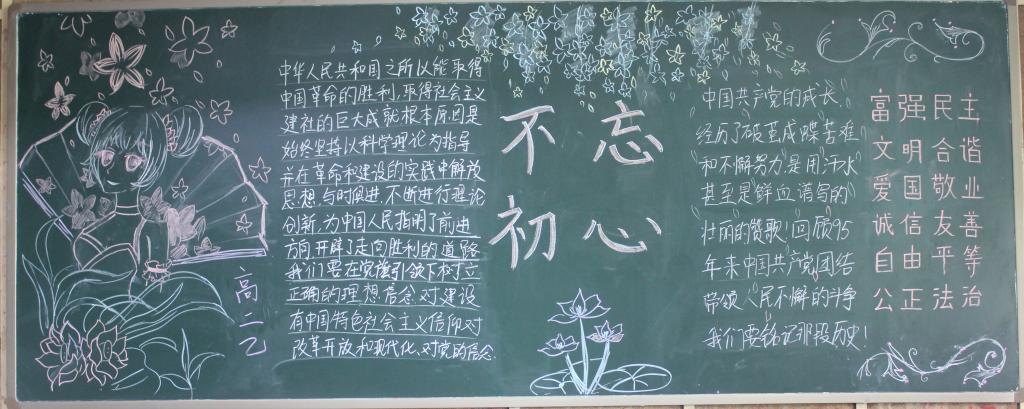 中华人民共和国之所以能取得
中国革命的胜利,取得社会主义
建社的巨大成就根本原因是
始终坚持以科学理论为指导
并在革命和建设的实践中解放
思想与时俱进,不断进行理论
创新,为中国人民指明了前进
方向开辟了走向胜利的道路
我们要在党旗引领下树立
正确的理想信念,对建设
有中国特色社会主义信仰对
改革开放和现代化,对党的信念
高二乙
不忘
初心
中国共产党的成长,
经历了破茧成蝶苦难
和不懈努力,是用汗水
甚至是鲜血谱写的
壮丽的赞歌!回顾95
年来中国共产党团结
带领人民不懈的斗争
我们要铭记那段历史!
富强民主
文明合谐
爱国敬业
诚信友善
自由平等
公正法治